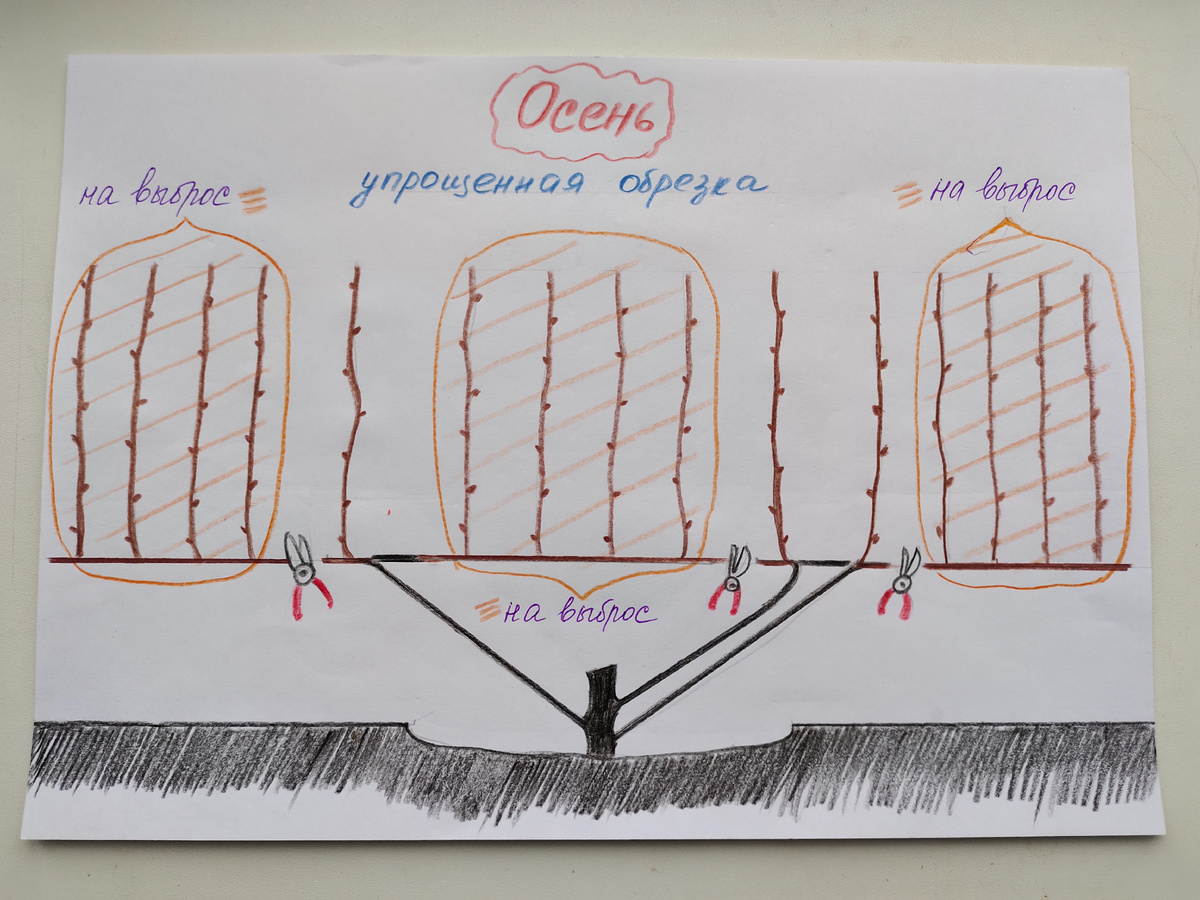 Осень
упрощенная обрезка
на выброс
на выброс
на выброс